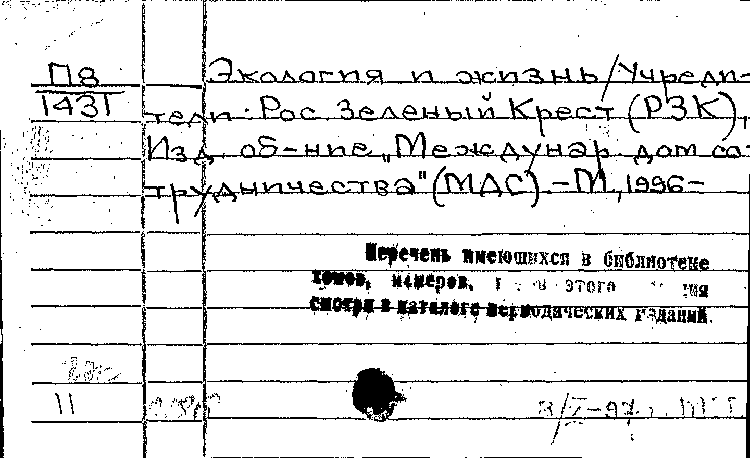 П8
1431
Экология и жизнь/Учреди-
тели: Рос. Зеленый Крест (РЗК),
Изд. об-ние „Междунар. дом со-
трудничества" (МДС). – М., 1996–
Перечень имеющихся в библиотеке
томов, номеров, этого
смотри в каталоге периодических изданий.
11